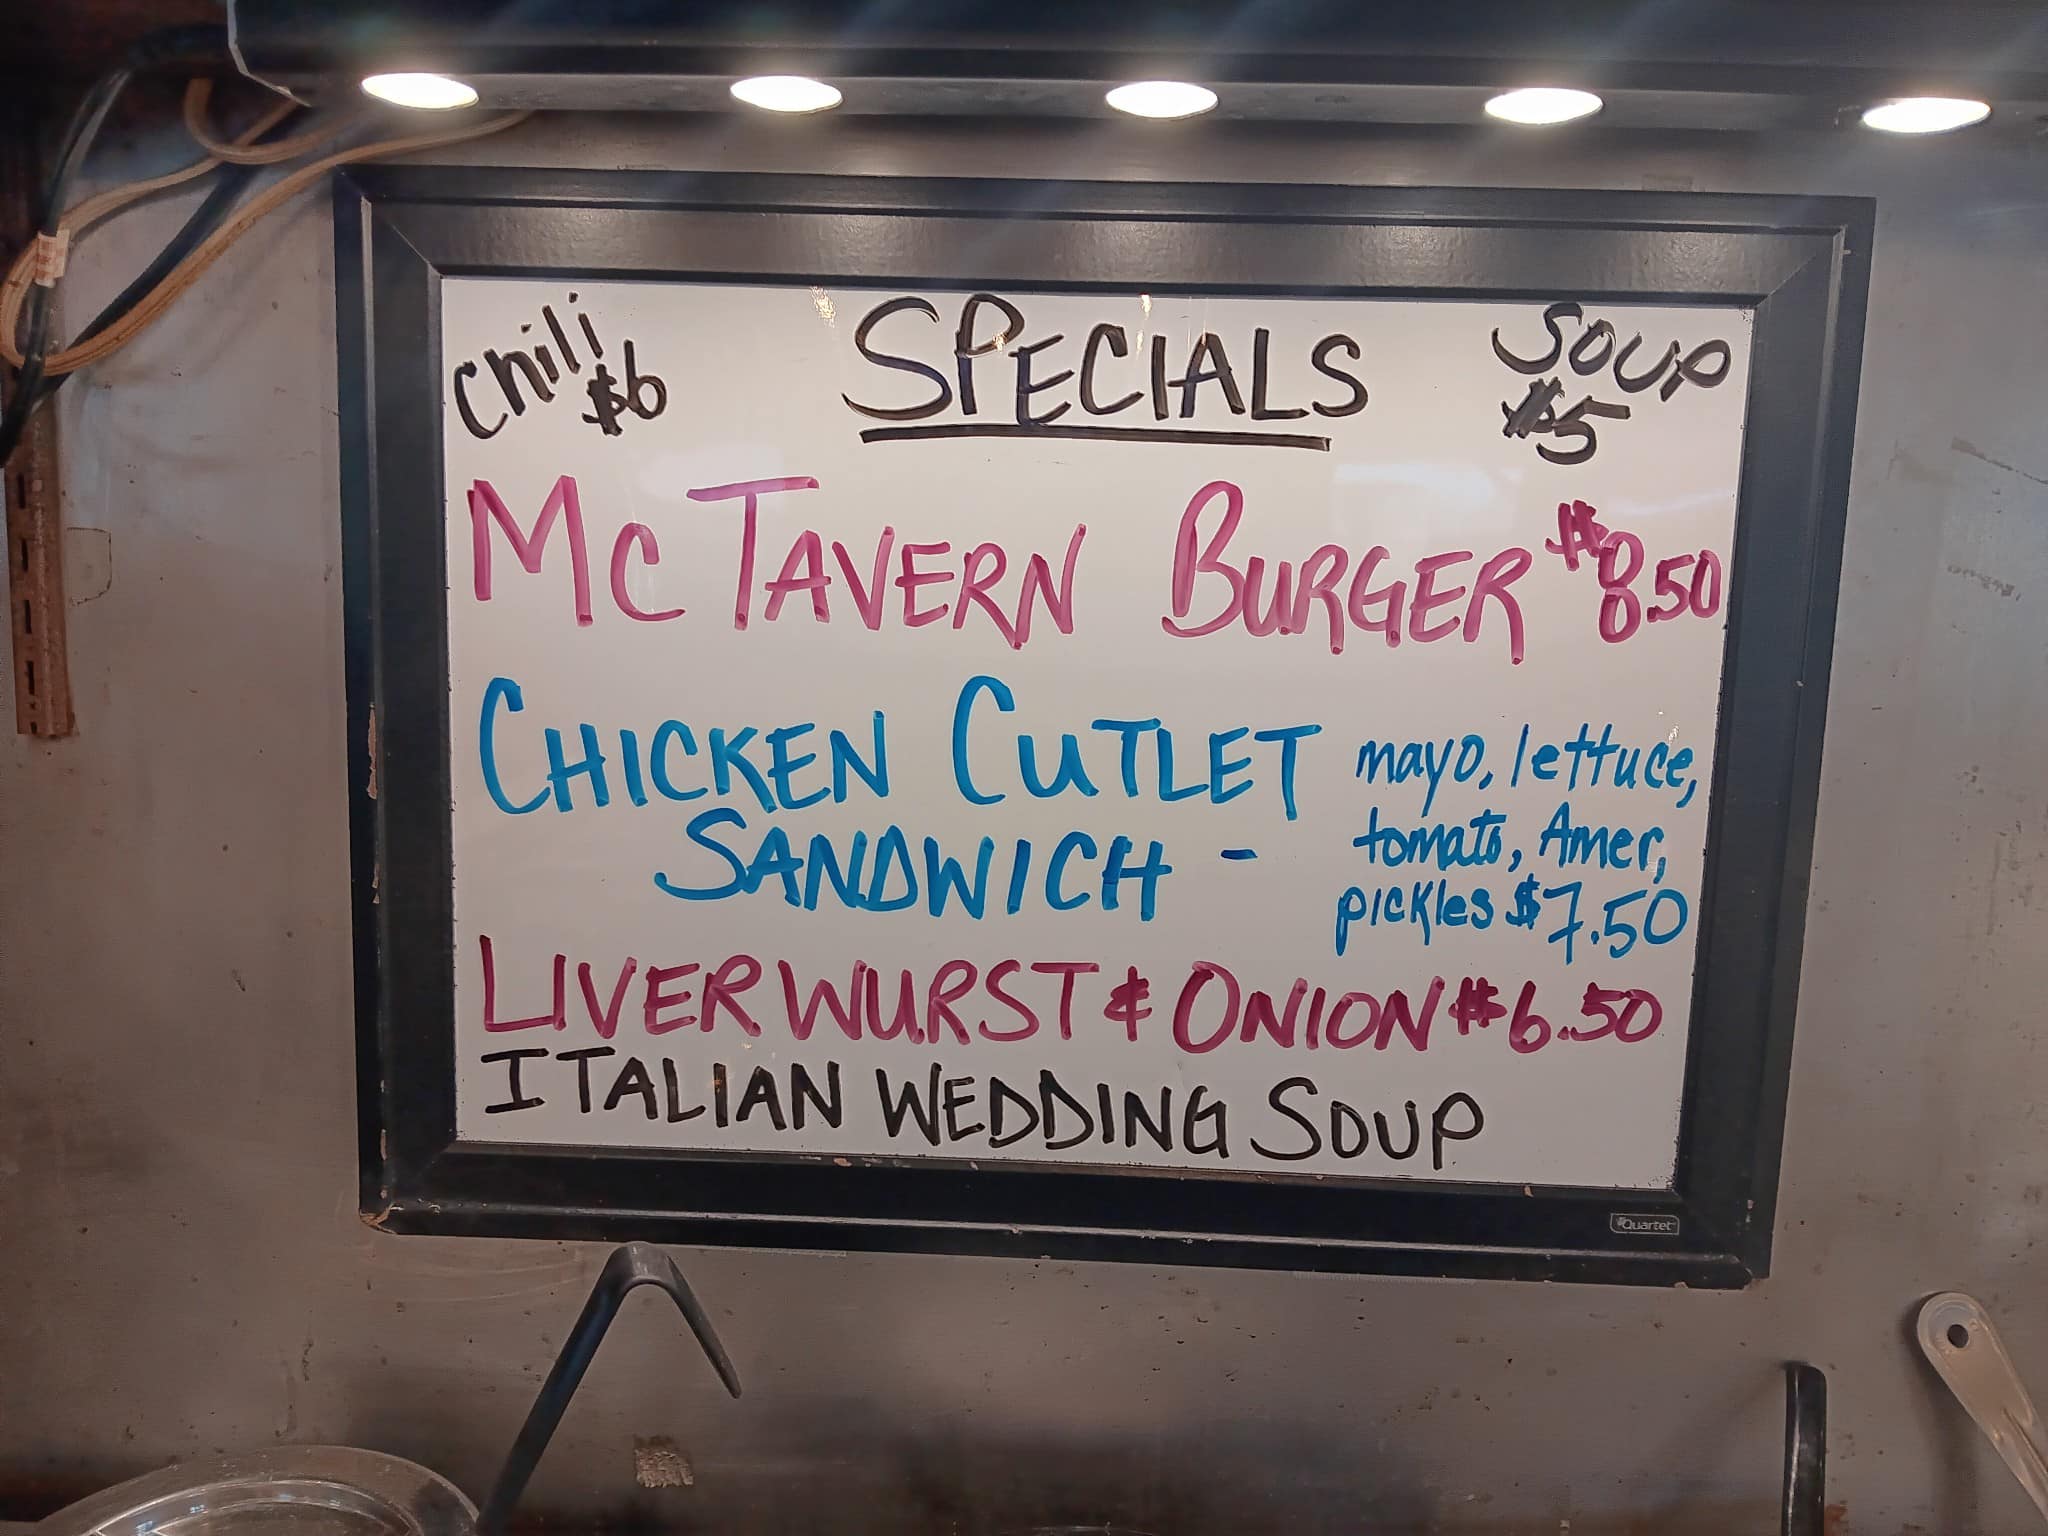 Chili
$6
SPECIALS
SOUP
$5
MCTAVERN BURGER $8.50
CHICKEN CUTLET
SANDWICH -
mayo, lettuce,
tomato, Amer,
pickles $7.50
LIVERWURST & ONION $6.50
ITALIAN WEDDING SOUP
Quartet